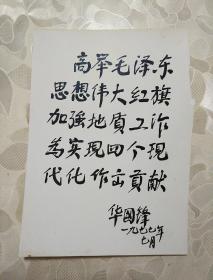 高举毛泽东
思想伟大红旗
加强地质工作
為实现四个现
代化作出贡献
华国锋
一九七七年
七月